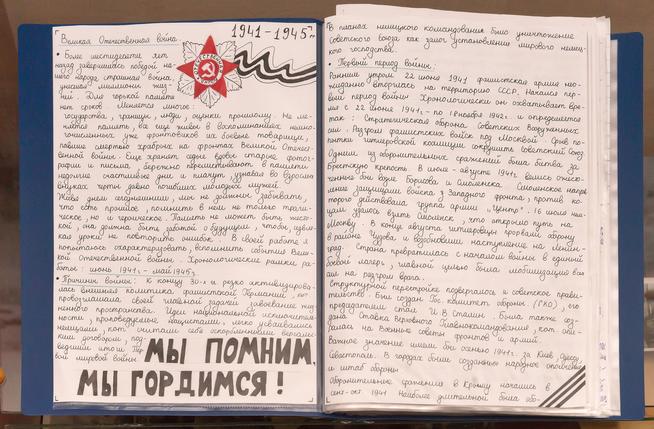 Великая Отечественная война.
1941-1945гг
• Более шестидесяти лет
назад завершилась победой на-
шего народа страшная война,
унёсшая миллионы жиз-
ней. Для горькой памяти
нет сроков. Меняется многое:
государства, границы, люди, оценки прошлому. Не ме-
няется память, ещё живёт в воспоминаниях немно-
гочисленных уже фронтовиков их боевых товарищи,
павшие смертью храбрых на фронтах Великой Отечест-
венной войны. Ещё хранят седые вдовы старые фотогра-
фии и письма, бережно перелистывают в памяти
недолгие счастливые дни и плачут, узнавая во взрослых
внуках черты давно погибших молодых мужей.
Живя днём сегодняшним, мы не должны забывать,
что есть прошлое, помнить в нём не только траги-
ческое, но и героическое. Память не может быть жесто-
кой, она должна быть заботой о будущем, чтобы
уроки не повторить ошибок. В своей работе я
попыталась охарактеризовать, вспомнить события Вели-
кой Отечественной войны. Хронологические рамки ра-
боты: июнь 1941г - май 1945г.
• Причины войны: К концу 30-х гг резко активизирова-
лась внешняя политика фашистской Германии,
провозгласила своей главной задачей завоевание жиз-
ненного пространства. Идеи национальной исключитель-
ности, проповедуемые нацистами, легко усваивались
немцами, кот. считали себя оскорблёнными версаль-
ским договором, под-
ведшим итоги Пер-
вой мировой войны.
МЫ ПОМНИМ,
МЫ ГОРДИМСЯ!
В планах немецкого командования было уничтожение
Советского союза как залог установления мирового немец-
кого господства.
• Первый период войны:
Ранним утром 22 июня 1941 фашистская армия нео-
жиданно вторглась на территорию СССР. Начался пер-
вый период войны. Хронологически он охватывает вре-
мя с 22 июня 1941г. - по 18 ноября 1942г. и определяется
так: Стратегическая оборона Советских Вооружённых
сил. Разгром фашистских войск под Москвой. Срыв по-
пытки гитлеровской коалиции сокрушить Советский Союз
Одним из оборонительных сражений была битва за
Брестскую крепость. В июне - августе 1941г. велись ожесто-
ченные бои возле Борисова и Смоленска. Смоленское направ-
ление защищали войска Западного фронта, против ко-
торого действовала группа армий "Центр". 16 июля нем-
цам удалось взять Смоленск, что открыло путь на
Москву. В конце августа гитлеровцы прорвали оборону
в районе Чудова, и возобновили наступление на Ленин-
град. Страна превратилась с началом войны в единый
боевой лагерь, главной целью была мобилизация всех
сил на разгром врага.
Структурной перестройке подверглось и советское прави-
тельство. Был создан Гос. комитет обороны (ГКО), его
председателем стал И.В. Сталин. Была также соз-
дана Ставка Верховного Главнокомандования, кот. опи-
ралась на Военные советы фронтов и армий.
Важное значение имели бои осенью 1941г. за Киев, Одессу,
Севастополь. В городах были созданы народное ополчение
и штаб обороны
Оборонительные сражения в Крыму начались в
сент.-окт. 1941. Наиболее длительной была об-